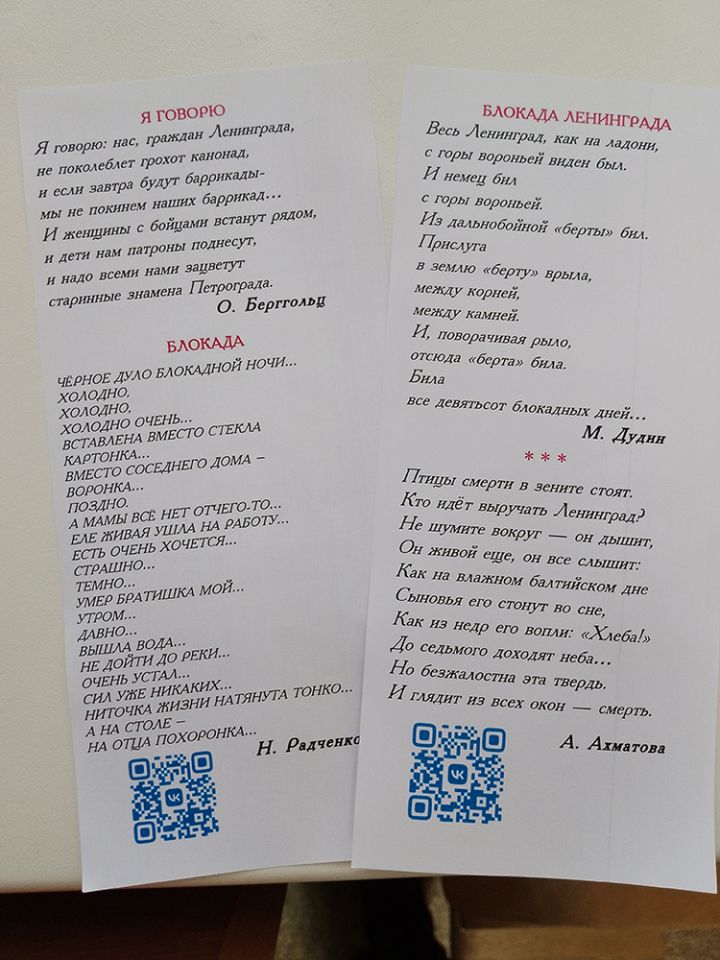 Я ГОВОРЮ
Я говорю: нас, граждан Ленинграда,
не поколеблет грохот канонад,
и если завтра будут баррикады-
мы не покинем наших баррикад...
И женщины с бойцами встанут рядом,
и дети нам патроны поднесут,
и надо всеми нами зацветут
старинные знамена Петрограда.
О. Берггольц
БЛОКАДА
ЧЁРНОЕ ДУЛО БЛОКАДНОЙ НОЧИ...
ХОЛОДНО,
ХОЛОДНО,
ХОЛОДНО ОЧЕНЬ...
ВСТАВЛЕНА ВМЕСТО СТЕКЛА
КАРТОНКА...
ВМЕСТО СОСЕДНЕГО ДОМА –
ВОРОНКА...
ПОЗДНО.
А МАМЫ ВСЁ НЕТ ОТЧЕГО-ТО...
ЕЛЕ ЖИВАЯ УШЛА НА РАБОТУ...
ЕСТЬ ОЧЕНЬ ХОЧЕТСЯ...
СТРАШНО...
ТЕМНО...
УМЕР БРАТИШКА МОЙ...
УТРОМ...
ДАВНО...
ВЫШЛА ВОДА...
НЕ ДОЙТИ ДО РЕКИ...
ОЧЕНЬ УСТАЛ...
СИЛ УЖЕ НИКАКИХ...
НИТОЧКА ЖИЗНИ НАТЯНУТА ТОНКО...
А НА СТОЛЕ –
НА ОТЦА ПОХОРОНКА...
Н. Радченко
БЛОКАДА ЛЕНИНГРАДА
Весь Ленинград, как на ладони,
с горы вороньей виден был.
И немец бил
с горы вороньей.
Из дальнобойной «берты» бил.
Прислуга
в землю «берту» врыла,
между корней,
между камней.
И, поворачивая рыло,
отсюда «берта» била.
Била
все девятьсот блокадных дней...
М. Дудин
* * *
Птицы смерти в зените стоят.
Кто идёт выручать Ленинград?
Не шумите вокруг — он дышит,
Он живой еще, он все слышит:
Как на влажном балтийском дне
Сыновья его стонут во сне,
Как из недр его вопли: «Хлеба!»
До седьмого доходят неба...
Но безжалостна эта твердь.
И глядит из всех окон — смерть.
А. Ахматова